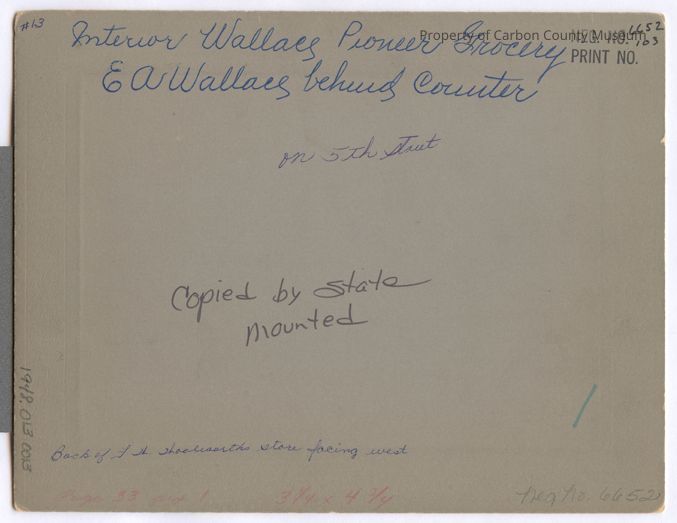 #13
Interior Wallace Pioneer Grocery
Property of Carbon County Museum
NEG. NO. 6652
163
PRINT NO.
E A Wallace behind Counter
on 5th Street
Copied by State
Mounted
1948.013.0013
Back of F W Woolworths store facing west
Page 33 pix 1
3 3/4 x 4 3/4
Neg No. 6652